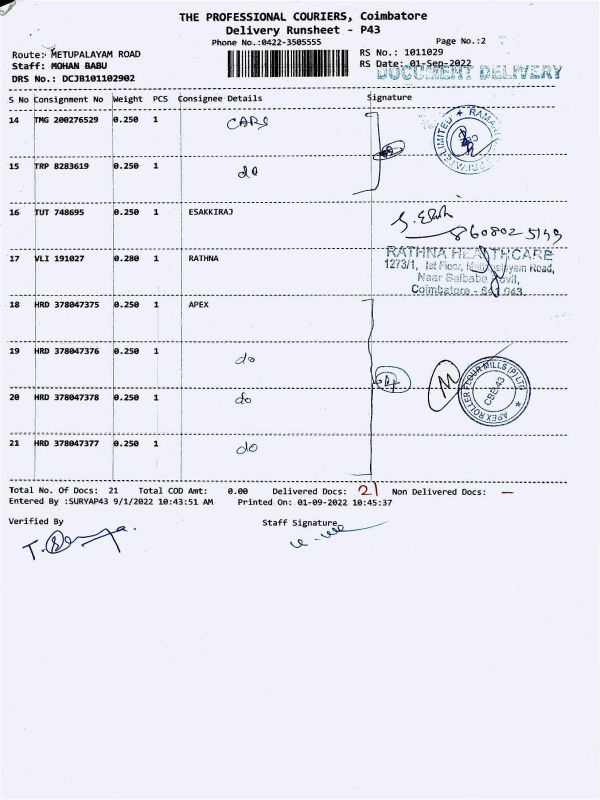 THE PROFESSIONAL COURIERS, Coimbatore
Delivery Runsheet - P43
Phone No.:0422-3505555
Page No.:2
Route: METUPALAYAM ROAD
RS No.: 1011029
Staff: MOHAN BABU
RS Date: 01-Sep-2022
DOCUMENT DELIVERY
DRS No.: DCJB101102902
S No Consignment No Weight PCS Consignee Details Signature
14 TMG 200276529 0.250 1 CARS
15 TRP 8283619 0.250 1 do
16 TUT 748695 0.250 1 ESAKKIRAJ
8608025199
17 VLI 191027 0.280 1 RATHNA
RATHNA HEALTHCARE
1273/1, Ist Floor, Road,
Near Saibaba
Coimbatore - 641 043.
18 HRD 378047375 0.250 1 APEX
19 HRD 378047376 0.250 1 do
M
APEX ROLLER FLOUR MILLS (P) LTD
CBE-43
20 HRD 378047378 0.250 1 do
21 HRD 378047377 0.250 1 do
Total No. Of Docs: 21 Total COD Amt: 0.00 Delivered Docs: 21 Non Delivered Docs: —
Entered By :SURYAP43 9/1/2022 10:43:51 AM Printed On: 01-09-2022 10:45:37
Verified By Staff Signature